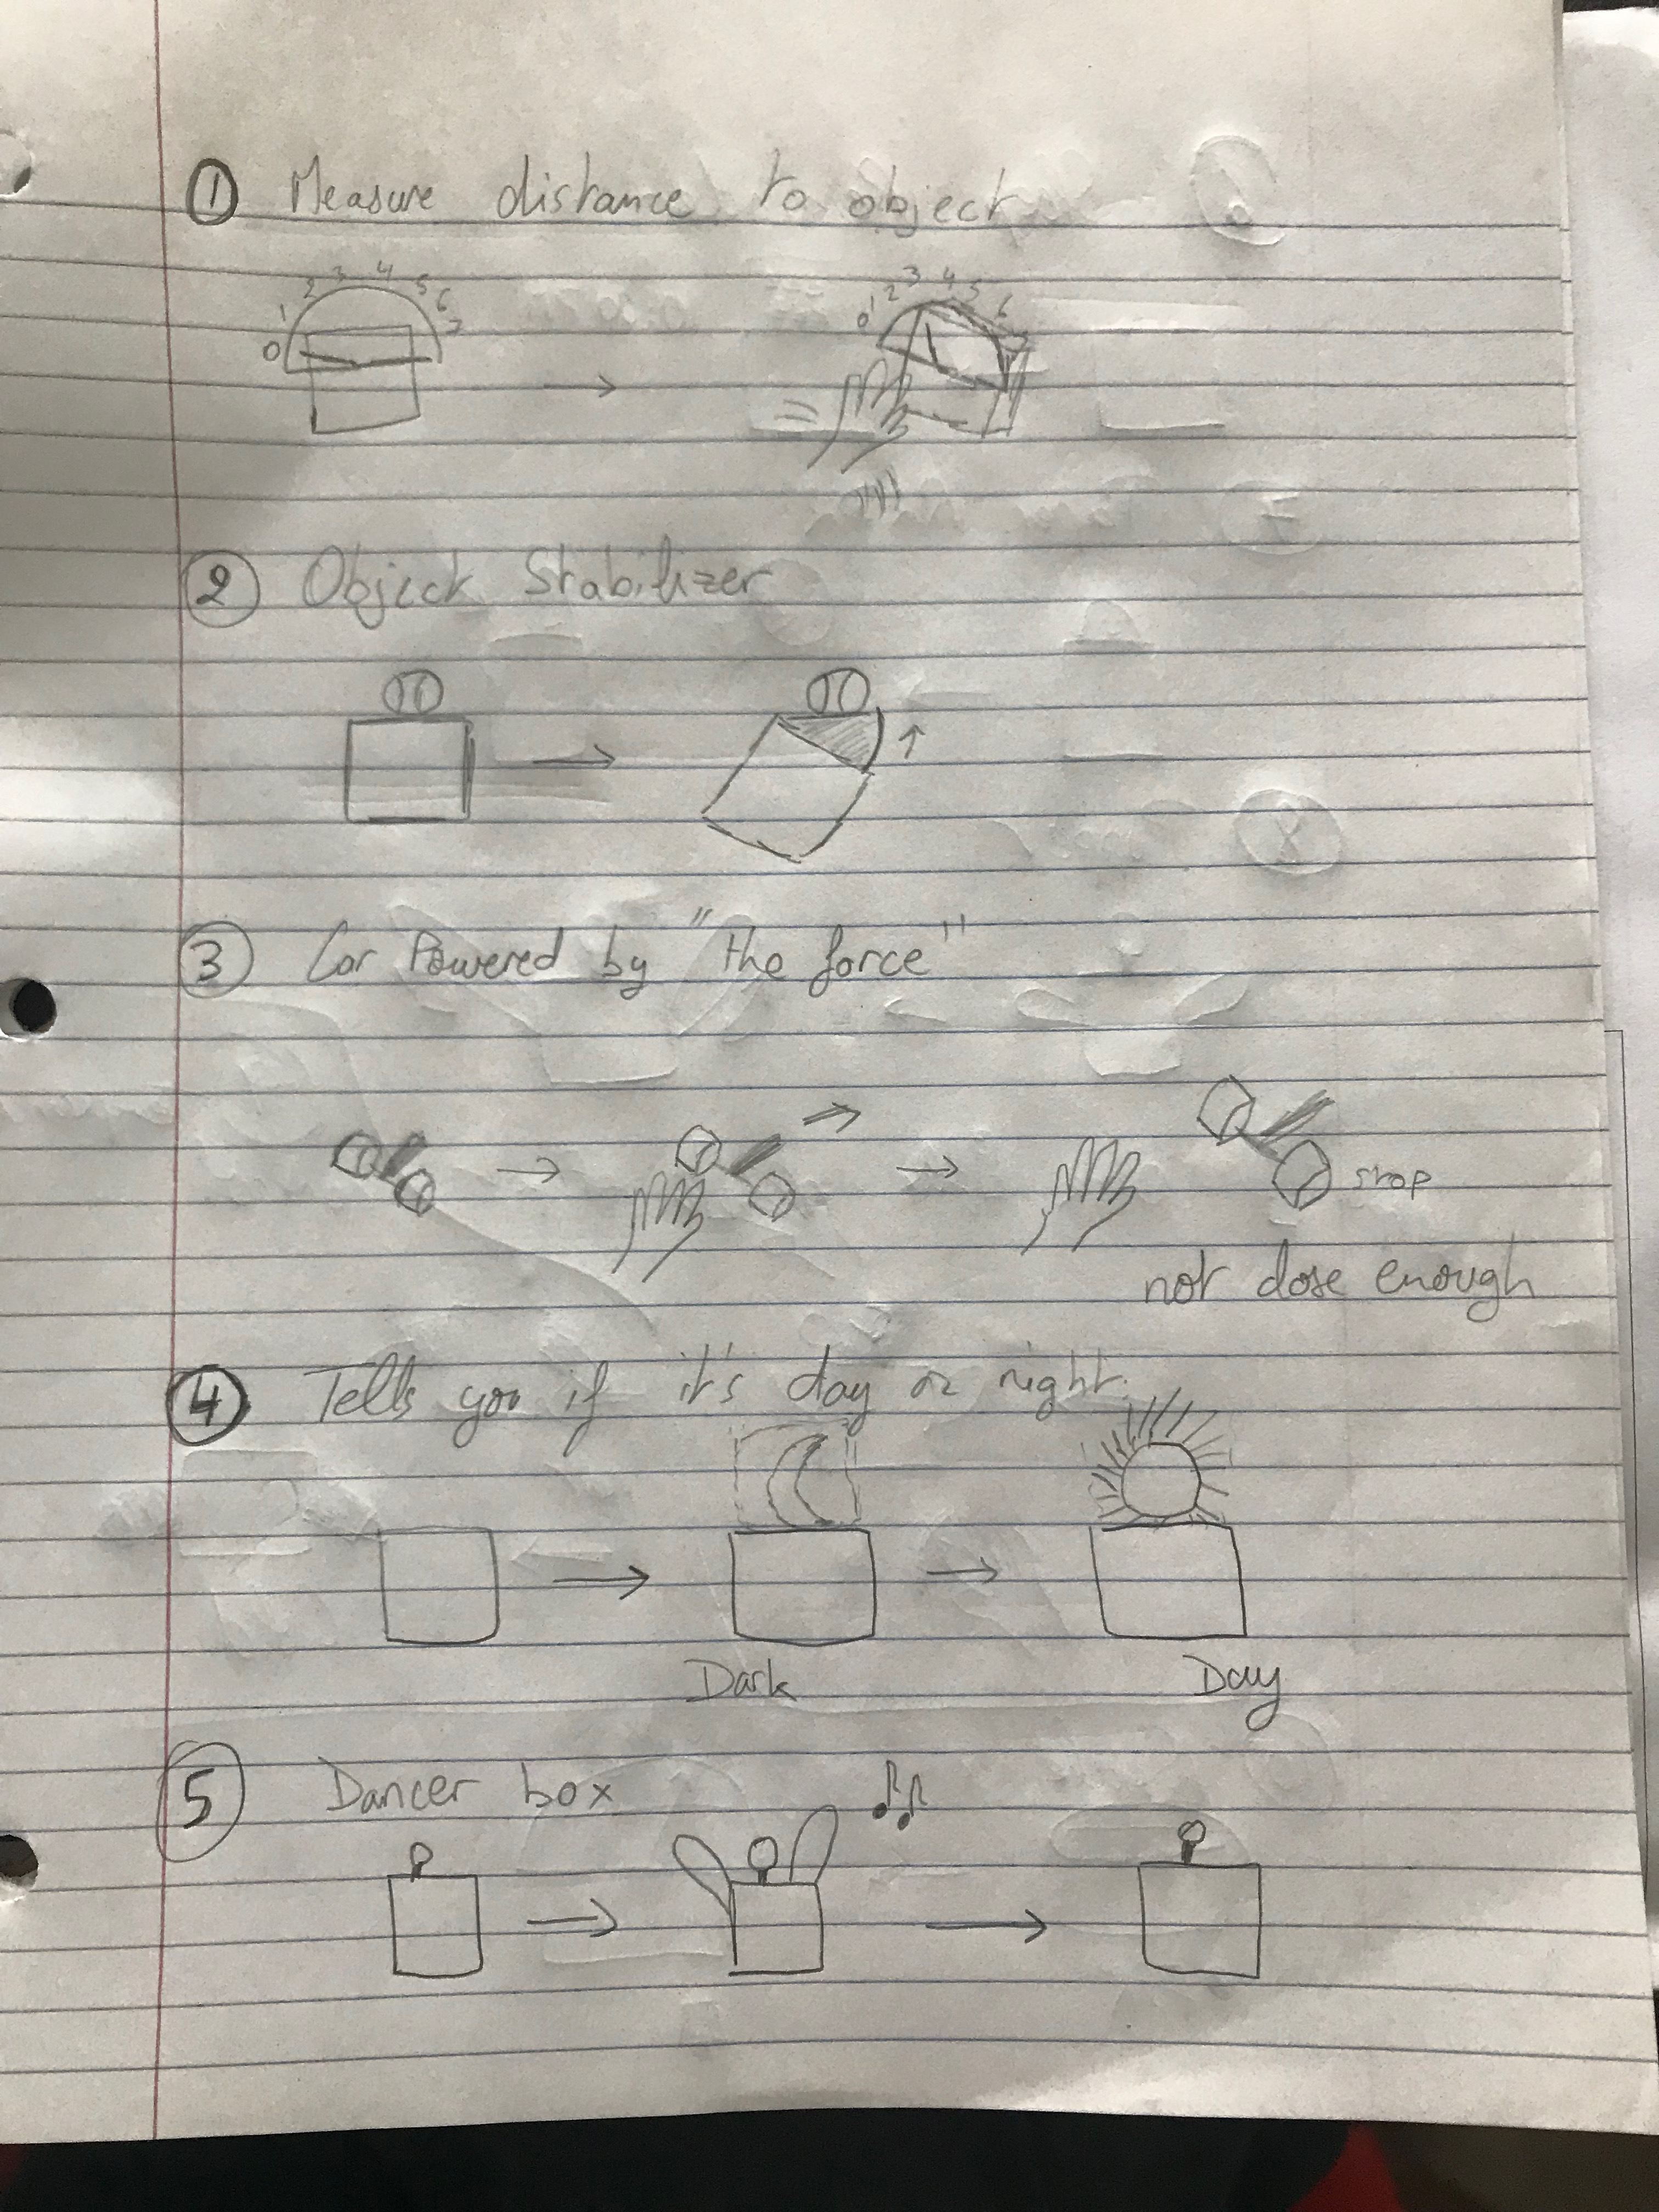 1 Measure distance to object
0 1 2 3 4 5 6 7
0 1 2 3 4 5 6
2 Object Stabilizer
3 Car Powered by "the force"
stop
not close enough
4 Tells you if it's day or night.
Dark Day
5 Dancer box